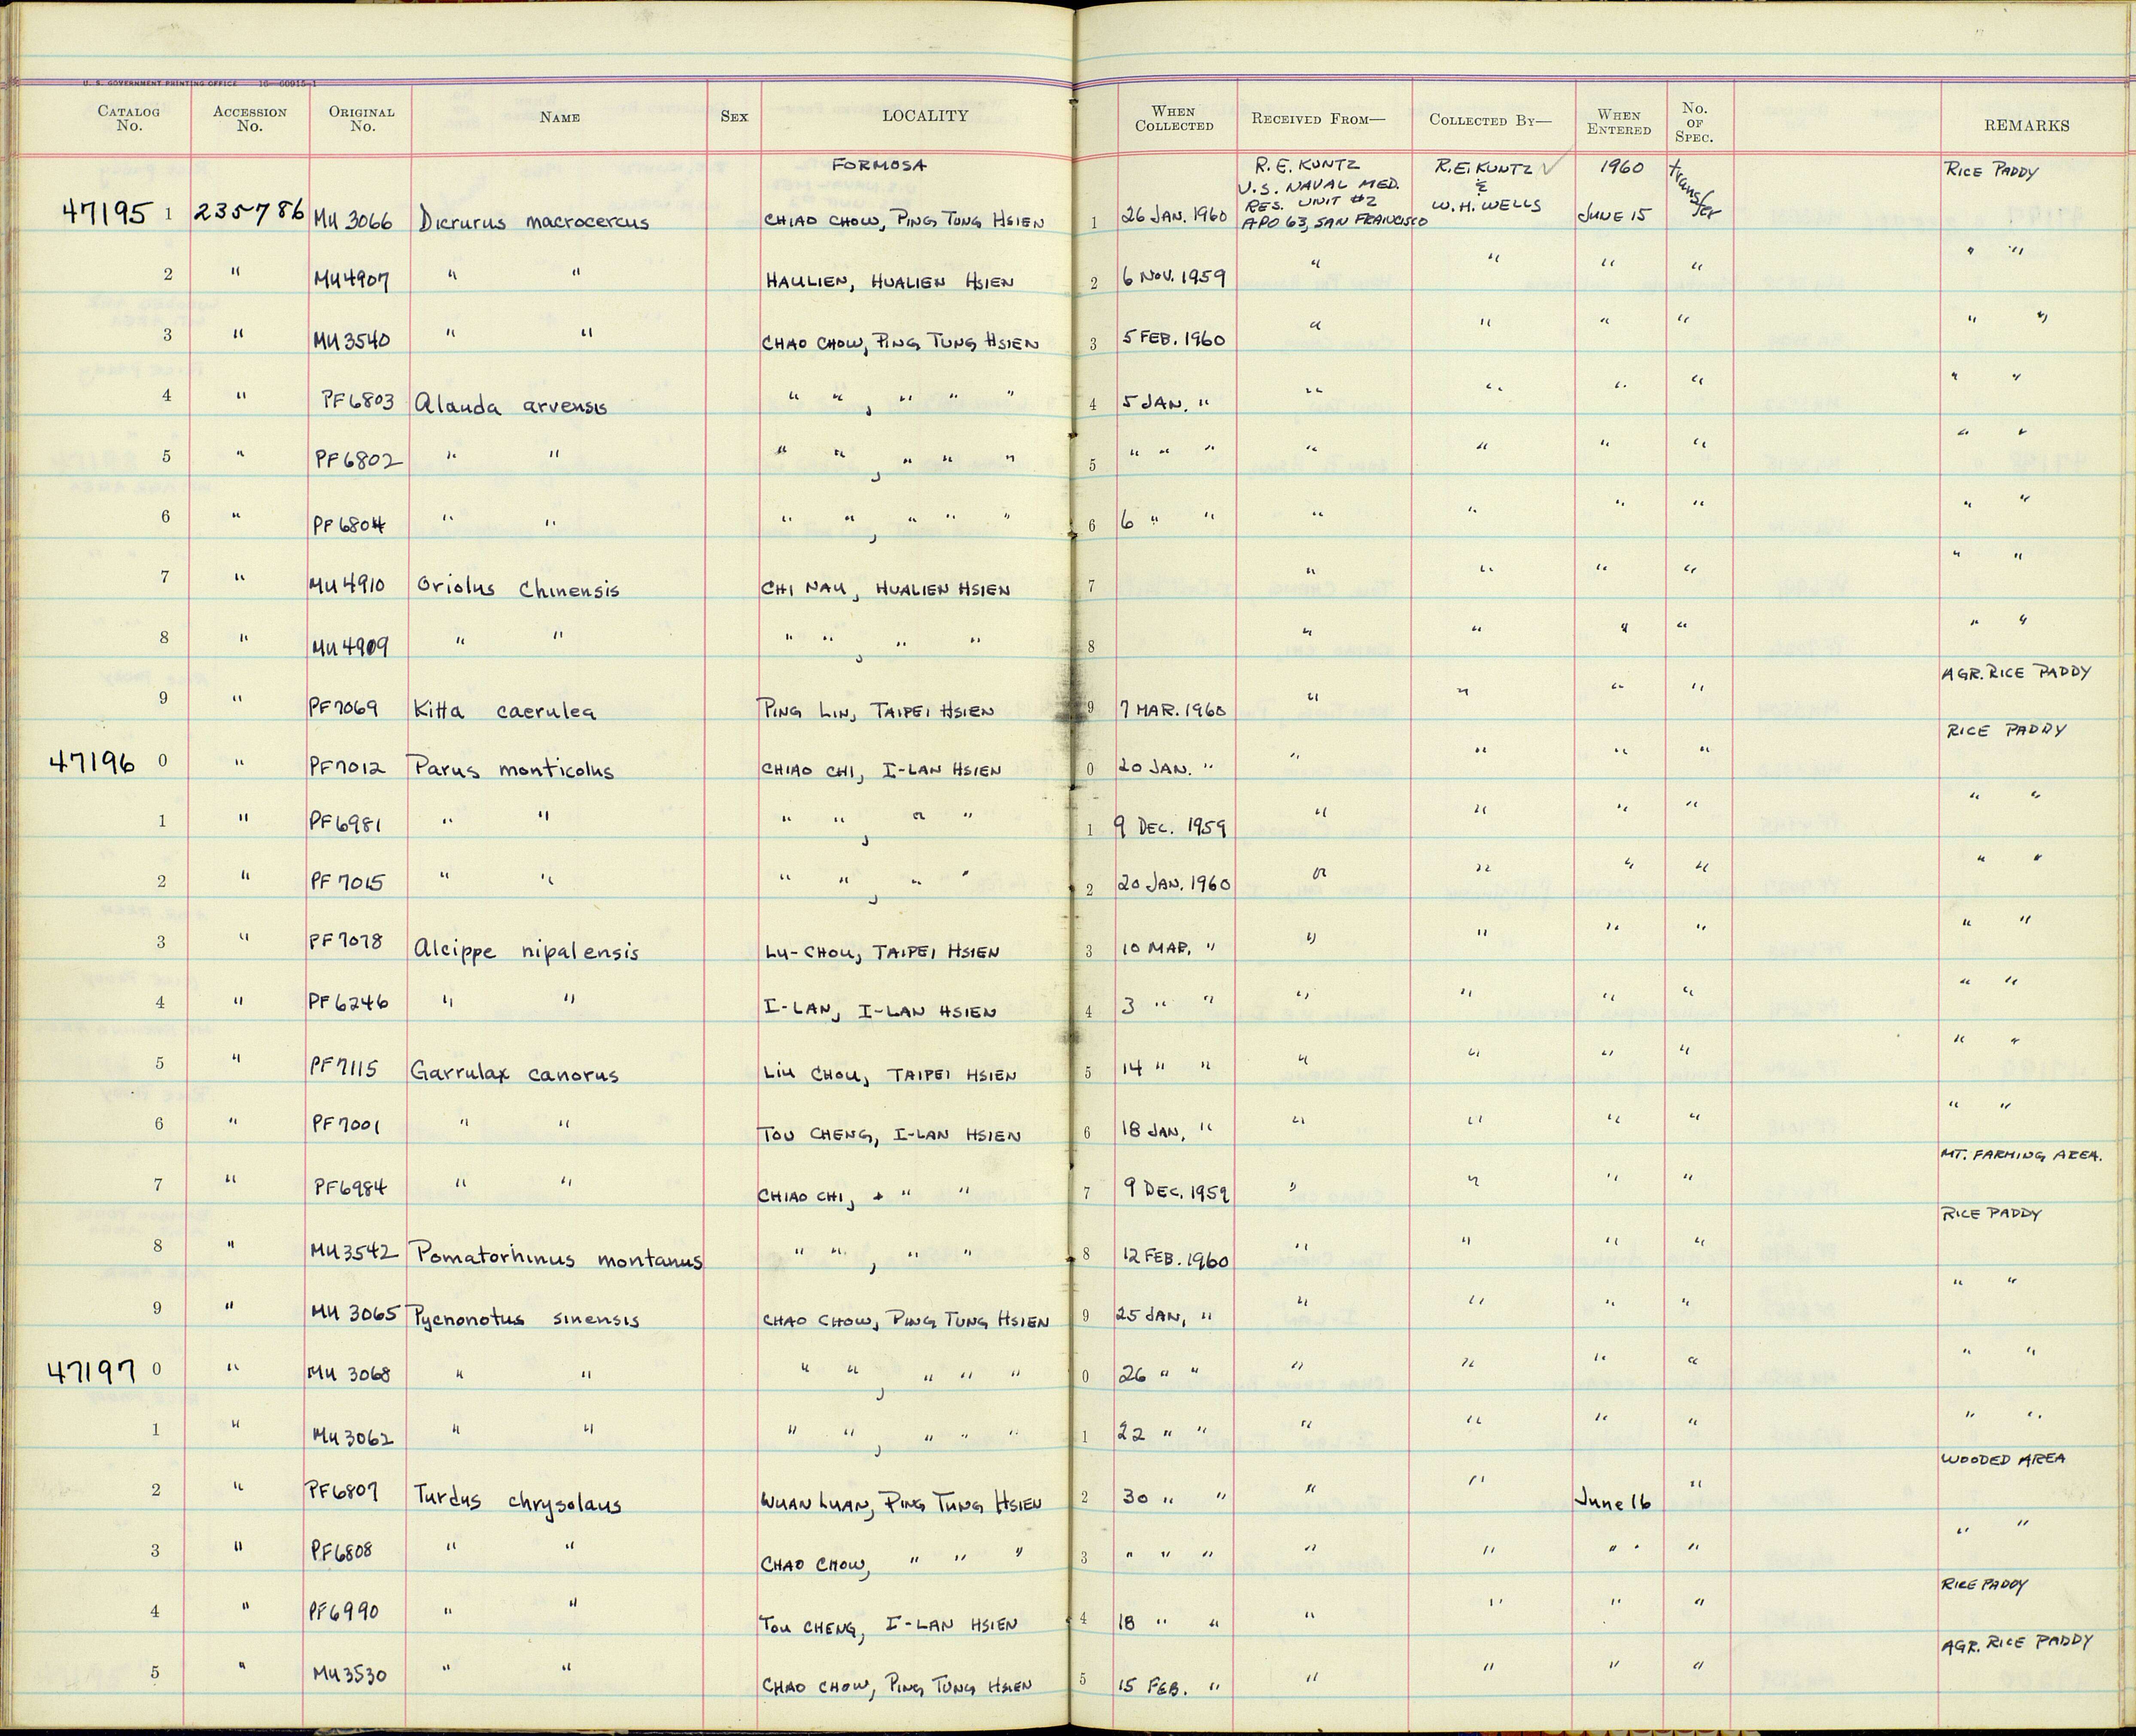 U. S. GOVERNMENT PRINTING OFFICE 16—60915-1
CATALOG No. ACCESSION No. ORIGINAL No. NAME SEX LOCALITY WHEN COLLECTED RECEIVED FROM— COLLECTED BY— WHEN ENTERED No. OF SPEC. REMARKS
FORMOSA R. E. KUNTZ R.E. KUNTZ ✓ 1960 transfer RICE PADDY
U.S. NAVAL MED. &
RES. UNIT #2 W. H. WELLS
47195 1 235786 MU 3066 Dicrurus macrocercus CHIAO CHOW, PING TUNG HSIEN 1 26 JAN. 1960 APO 63, SAN FRANCISCO JUNE 15
2 " MU4907 " " HAULIEN, HUALIEN HSIEN 2 6 NOV. 1959 " " " " " "
3 " MU3540 " " CHAO CHOW, PING TUNG HSIEN 3 5 FEB. 1960 " " " " " "
4 " PF6803 Alauda arvensis " " , " " " 4 5 JAN. " " " " " " "
5 " PF6802 " " " " , " " " 5 " " " " " " " " "
6 " PF6804 " " " " , " " " 6 6 " " " " " " " "
7 " MU4910 Oriolus Chinensis CHI NAU, HUALIEN HSIEN 7 " " " " " "
8 " MU4909 " " " " , " " 8 " " " " " "
9 " PF7069 Kitta caerulea PING LIN, TAIPEI HSIEN 9 7 MAR. 1960 " " " " AGR. RICE PADDY
47196 0 " PF7012 Parus monticolus CHIAO CHI, I-LAN HSIEN 0 20 JAN. " " " " " RICE PADDY
1 " PF6981 " " " " , " " 1 9 DEC. 1959 " " " " " "
2 " PF7015 " " " " , " " 2 20 JAN. 1960 " " " " " "
3 " PF7078 Alcippe nipalensis LU-CHOU, TAIPEI HSIEN 3 10 MAR. " " " " " " "
4 " PF6246 " " I-LAN, I-LAN HSIEN 4 3 " " " " " " " "
5 " PF7115 Garrulax canorus LIU CHOU, TAIPEI HSIEN 5 14 " " " " " " " "
6 " PF7001 " " TOU CHENG, I-LAN HSIEN 6 18 JAN. " " " " " " "
7 " PF6984 " " CHIAO CHI, " " " 7 9 DEC. 1959 " " " " MT. FARMING AREA.
8 " MU3542 Pomatorhinus montanus " " , " " 8 12 FEB. 1960 " " " " RICE PADDY
9 " MU 3065 Pycnonotus sinensis CHAO CHOW, PING TUNG HSIEN 9 25 JAN, " " " " " " "
47197 0 " MU 3068 " " " " , " " " 0 26 " " " " " " " "
1 " MU 3062 " " " " , " " " 1 22 " " " " " " " "
2 " PF6807 Turdus chrysolaus WUAN LUAN, PING TUNG HSIEN 2 30 " " " " June 16 " WOODED AREA
3 " PF6808 " " CHAO CHOW, " " " 3 " " " " " " " " " "
4 " PF6990 " " TOU CHENG, I-LAN HSIEN 4 18 " " " " " " RICE PADDY
5 " MU3530 " " CHAO CHOW, PING TUNG HSIEN 5 15 FEB. " " " " " AGR. RICE PADDY